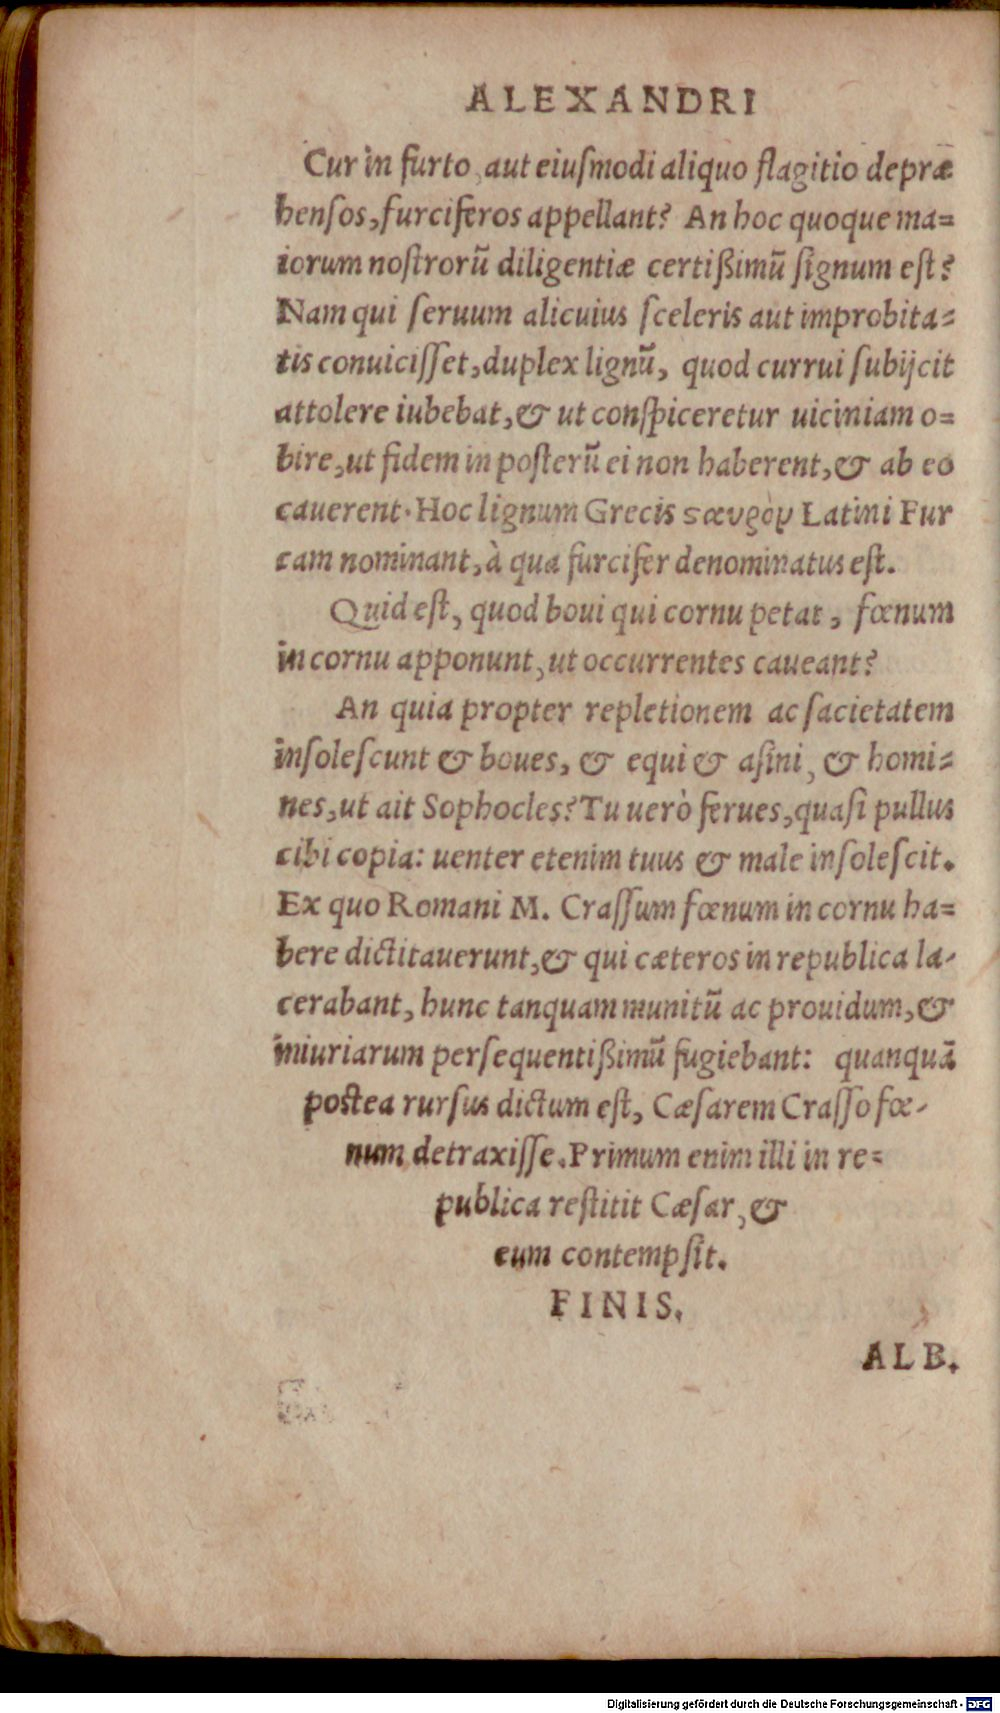 ALEXANDRI
Cur in furto, aut eiuſmodi aliquo flagitio depræ
henſos, furciferos appellant? An hoc quoque ma=
iorum noſtrorũ diligentiæ certißimũ ſignum eſt?
Nam qui ſeruum alicuius ſceleris aut improbita=
tis conuiciſſet, duplex lignũ, quod currui ſubijcit
attolere iubebat, & ut conſpiceretur uiciniam o=
bire, ut fidem in poſterũ ei non haberent, & ab eo
cauerent. Hoc lignum Grecis ςαυρὸν Latini Fur
cam nominant, à qua furcifer denominatus eſt.
Quid eſt, quod boui qui cornu petat, fœnum
in cornu apponunt, ut occurrentes caueant?
An quia propter repletionem ac ſacietatem
inſoleſcunt & boues, & equi & aſini, & homi=
nes, ut ait Sophocles? Tu uerò ferues, quaſi pullus
cibi copia: uenter etenim tuus & male inſoleſcit.
Ex quo Romani M. Craſſum fœnum in cornu ha=
bere dictitauerunt, & qui cæteros in republica la-
cerabant, hunc tanquam munitũ ac prouidum, &
iniuriarum perſequentißimũ fugiebant: quanquã
postea rurſus dictum eſt, Cæſarem Craſſo fœ-
num detraxiſſe. Primum enim illi in re=
publica reſtitit Cæſar, &
eum contempſit.
FINIS.
ALB.
Digitalisierung gefördert durch die Deutsche Forschungsgemeinschaft - DFG